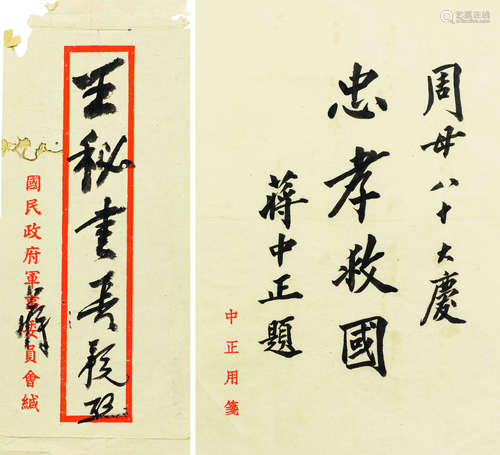 王秘書長親啟
國民政府軍事委員會緘
蔣
周母八十大慶
忠孝救國
蔣中正題
中正用箋